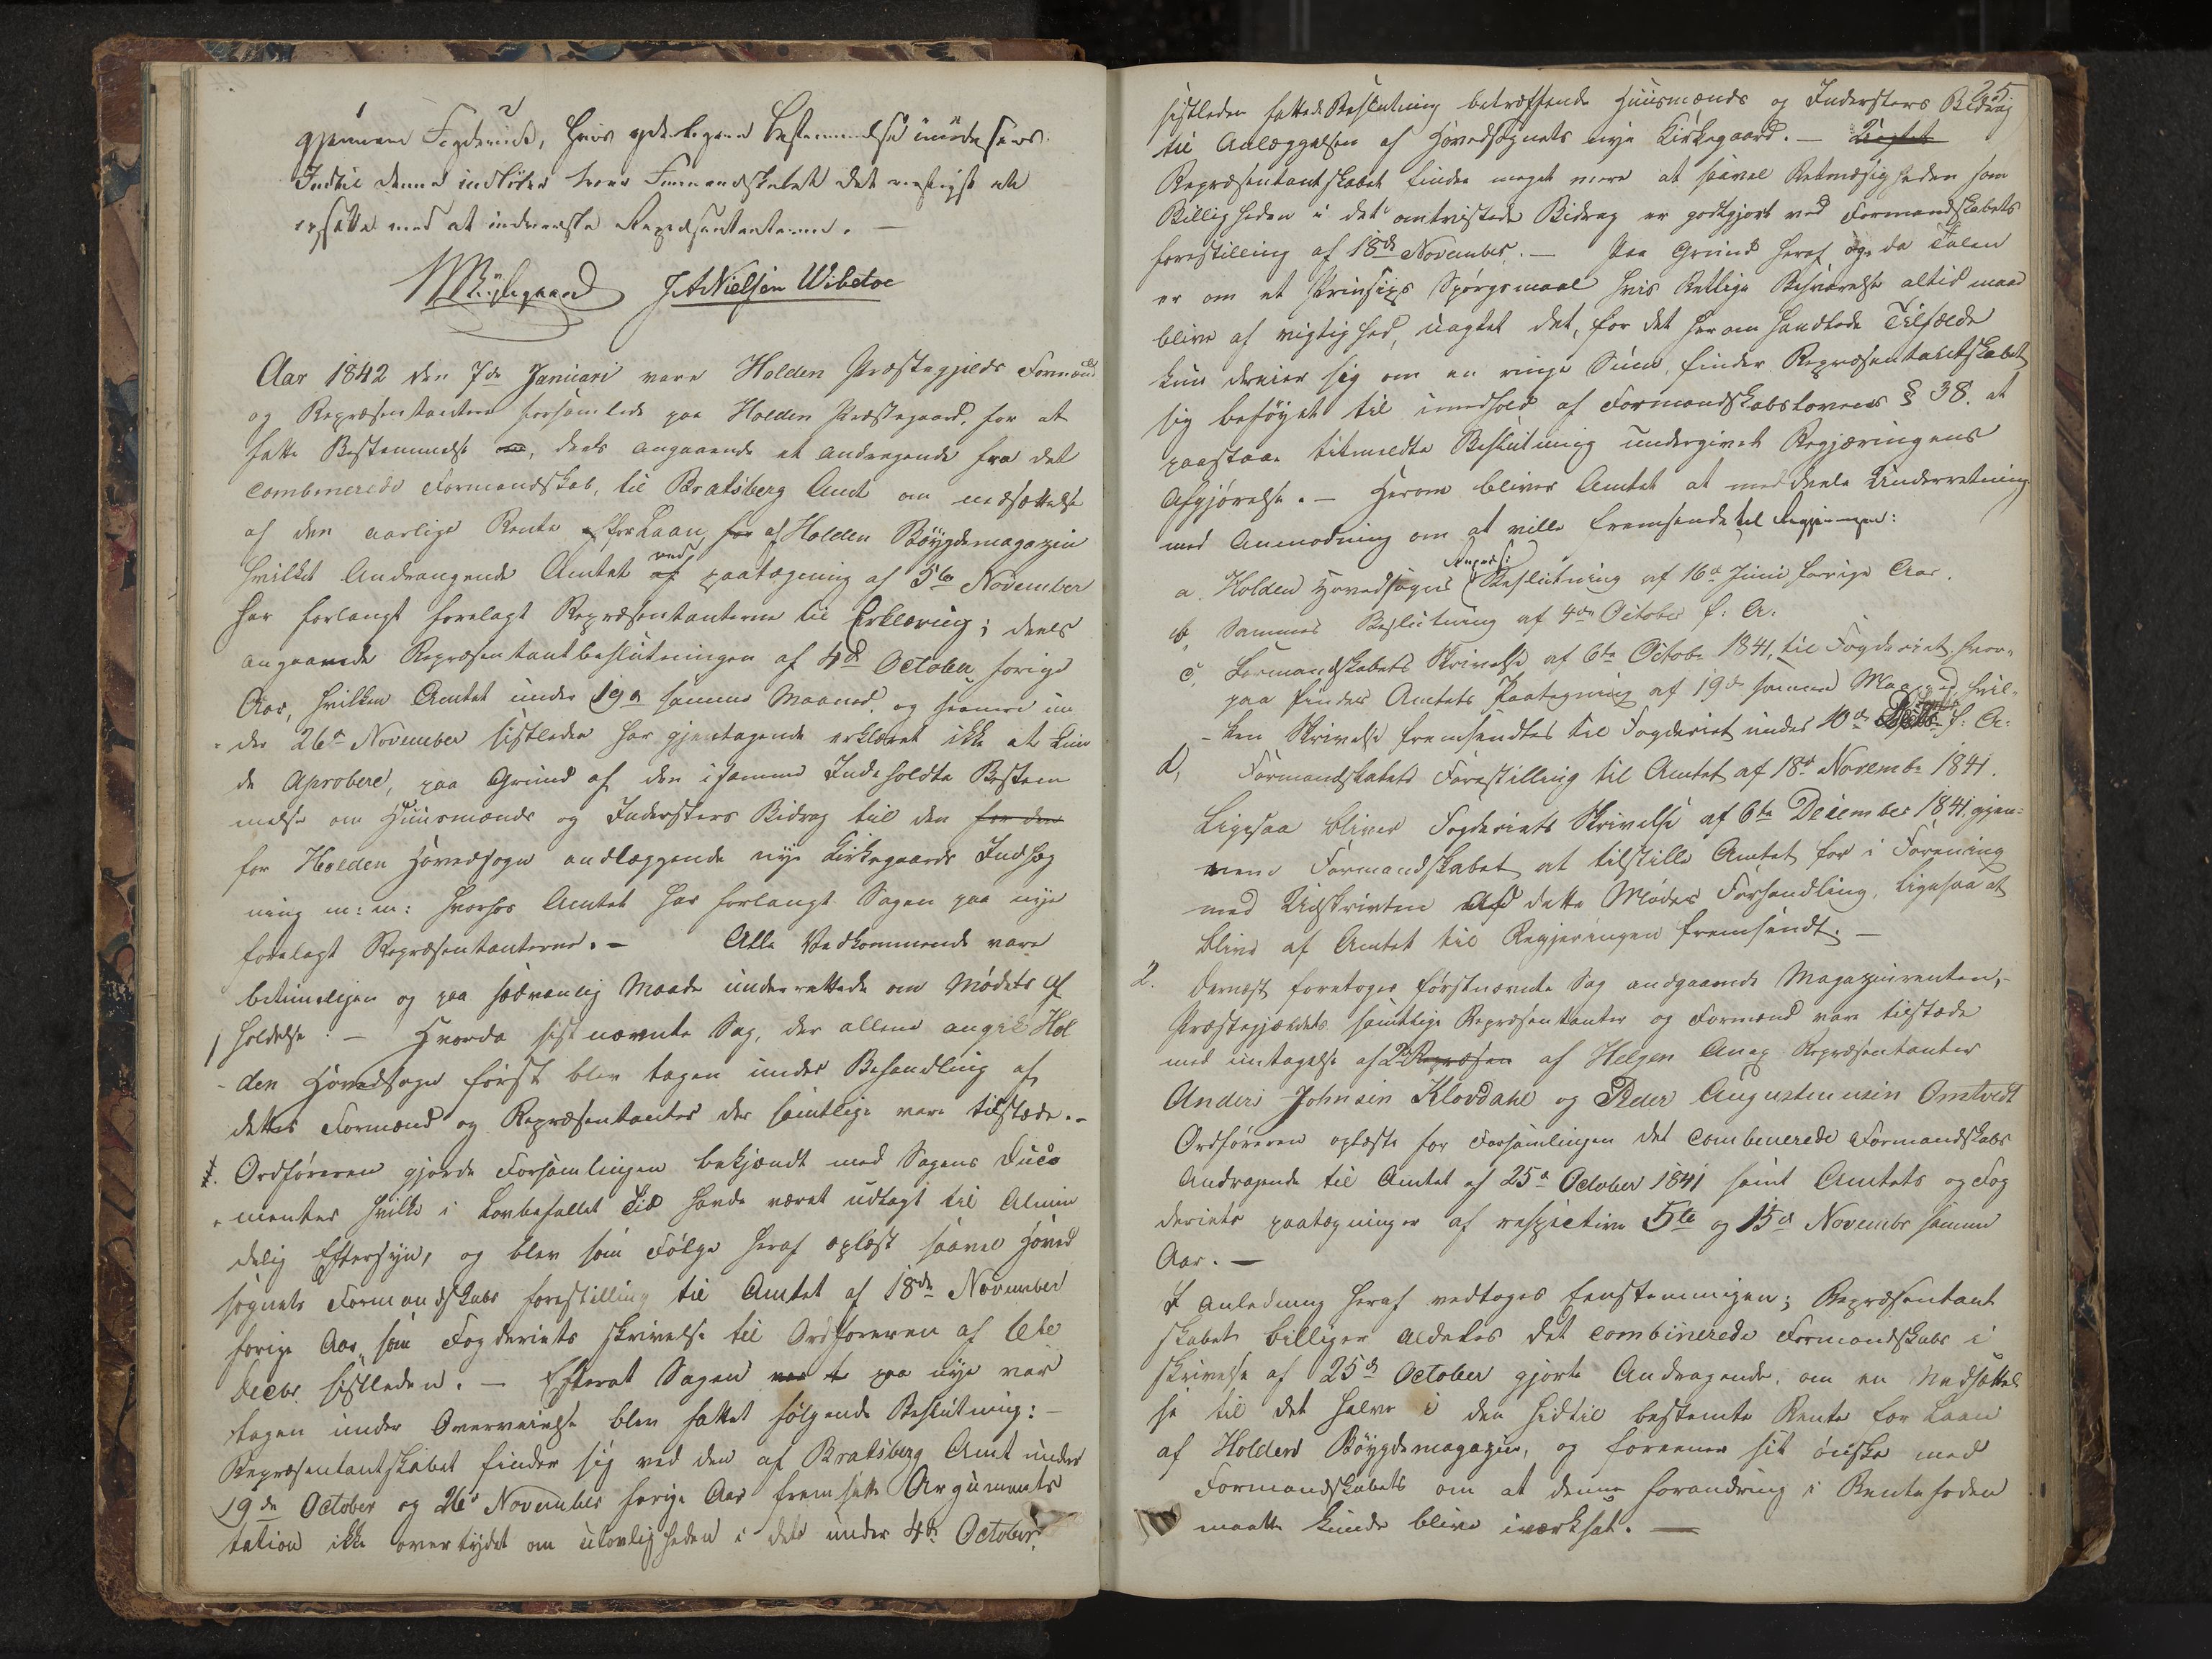 gjennem Fogderiet, hvis yderligere Bestemmelse imødesees.
Indtil denne indløber troer Formandskabet det rettigst at
opsætte med at indvarsle Repræsentanterne. —
J A Nielsen Wibetoe
Aar 1842 den 7de Januari vare Holden Præstegjelds Formænd
og Repræsentantere forsamlede paa Holden Præstegaard, for at
fatte Bestemmelse om, deels angaaende et andragende fra det
combinerede Formandskab, til Bratsberg Amt om nedsættelse
af den aarlige Rente for Laan af Holden Böygdemagazin
hvilket Andragende Amtet ved paategning af 5te November
har forlangt forelagt Repræsentanterne til Erklæring; deels
angaaende Repræsentantbeslutningen af 4de October forige
Aar, hvilken Amtet under 19de samme Maaned, og senere un
der 26de November sistleden har gjentagende erklæret ikke at kun
de Aprobere, paa Grund af den i samme Indeholdte Bestem
melse om Huusmænds og Indersters Bidrag til den for den
for Holden Hovedsogn andlæggende nye Kirkegaards Indheg
ning m: m: hvorfor Amtet har forlangt Sagen paa nye
forelagt Repræsentanterne. — Alle Vedkommende vare
betimeligen og paa sædvanlig Maade underrettede om Mødets Af
holdelse. — Hvorda sist nævnte Sag, der allene angik Hol
den Hovedsogn først blev tagen under Behandling af
dettes Formænd og Repræsentanter der samtlige vare tilstæde. —
1. Ordføreren gjorde Forsamlingen bekjendt med Sagens Docu
menter hvilke i Lovbefallet Tid havde været udlagt til Almin
delig Eftersyn, og blev som Følge heraf oplæst saavel Hoved
sognets Formandskabs forestilling til Amtet af 18de November
forige Aar, som Fogderiets skrivelse til Ordføreren af 6te
Decbr. sistleden. — Efterat Sagen var t paa nye var
tagen under Overveielse blev fattet følgende Beslutning: —
Repræsentantskabet finder sig ved den af Bratsberg Amt under
19de October og 26de November forige Aar fremsatte Argumentation
tation ikke overtydet om ulovligheden i det under 4de October
25.
sistleden fattede Beslutning betræffende Huusmænds og Indersters Bidrag
til Anlæggelsen af Hovedsognets nye Kirkegaard. —
Repræsentantskabet finder meget mere at saavel Retmæsigheden som
Billigheden i det omtvistede Bidrag er godtgjort ved Formandskabets
forestilling af 18de November. — Paa Grund heraf og da Talen
er om et Prinsips Spørgsmaal hvis Rettige Besvarelse altid maae
blive af vigtighed, uagtet det, for det her om handlede Tilfælde
kun dreier sig om en ringe Sum, finder Repræsentantskabet
sig beføyet til i medhold af Formandskabslovens § 38. at
paastaae bemeldte Beslutning undergivet Regjæringens
Afgjørelse. — Herom bliver Amtet at meddeele Underretning
med Anmodning om at ville fremsende til Regjeringen:
a. Holden Hovedsogns Beslutning af 16de Juni forige Aar.
b, Sammes Beslutning af 4de October f: A:
c, Formandskabets Skrivelse af 6te Octobr 1841, til Fogderiet hvor-
paa findes Amtets Paategning af 19de samme Maaned, hvil-
ken Skrivelse fremsendtes til Fogderiet under 10de f: A:
d, Formandskabets Forestilling til Amtet af 18de Novembr 1841.
Ligesaa bliver Fogderiets Skrivelse af 6te December 1841, gjen-
nem Formandskabet at tilstille Amtet for i Forening
med Udskrivten Af dette Mødes Forhandling, ligesaa at
blive af Amtet til Regjeringen fremsendt. —
2. Dernæst foretoges førstnævnte Sag andgaaende Magazinrenten, —
Præstegjeldets samtlige Repræsentanter og Formænd vare tilstæde
med untagelse af 2de Repræsen af Helgen Anex Repræsentanter
Anders Johnsen Klovdahl og Peder Augustinusen Omtvedt
Ordføreren oplæste for Forsamlingen det combinerede Formandskabs
Andragende til Amtet af 25de October 1841 samt Amtets og Fog
deriets paategninger af respective 5te og 15de Novembr samme
Aar. —
I Anledning heraf vedtoges Eenstemmigen; Repræsentant
skabet billiger aldeles det combinerede Formandskabs i
skrivelse af 25de October gjorte Andragende, om en Nedsættel
se til det halve i den hidtil bestemte Rente for Laan
af Holdens Böygdemagazin, og foreener sit önske med
Formandskabets om at denne forandring i Rentefoden
maatte kunde blive iværksat. —